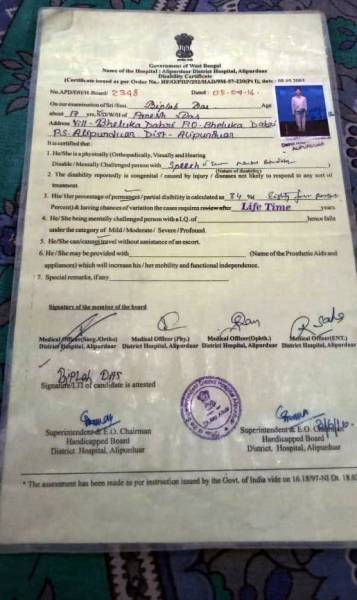 Government of West Bengal
Name of the Hospital : Alipurduar District Hospital, Alipurduar
Disability Certificate
(Certificate issued as per Order No.- HF/O/PHP/252/HAD/9M-97-220(Pt I), dt. - 08.05.2001
No.APD/DH/H-Board/ 2348 Dated : 05-09-16
On our examination of Sri/Smt. Biplab Das Age
about 17 yrs, Son/W/D of Paresh Das
Address Vill- Bheluka Dabri P.O. Bheluka Dabri
P.S. Alipurduar Dist - Alipurduar
It is certified that :
1. He/She is a physically (Orthopedically, Visually and Hearing
Disable / Mentally Challenged person with Speech
(Nature of disability)
2. The disability reportedly is congenital / caused by injury / diseases not likely to respond to any sort of
treatment.
3. His/Her percentage of permanent / partial disability is calculated as 84 % Eighty four percent
Percent) & having chances of variation the cases requires review after Life Time years.
4. He/She being mentally challenged person with a I.Q. of hence falls
under the category of Mild / Moderate / Severe / Profound.
5. He/She can/cannot travel without assistance of an escort.
6. He/She may be provided with (Name of the Prosthetic Aids and
appliances) which will increase his / her mobility and functional independence.
7. Special remarks, if any
Signature of the member of the board
Medical Officer(Surg./Ortho)
District Hospital, Alipurduar
Medical Officer (Phy.)
District Hospital, Alipurduar
Medical Officer (Ophth.)
District Hospital, Alipurduar
R. Saha
Medical Officer (ENT.)
District Hospital, Alipurduar
Biplab DAS
Signature/LTI of candidate is attested
Superintendent & E.O. Chairman
Handicapped Board
District Hospital, Alipurduar
Superintendent & E.O. Chairman
Handicapped Board
District Hospital, Alipurduar
* The assessment has been made as per instruction issued by the Govt. of India vide on 16.18/97-NI Dt. 18.0